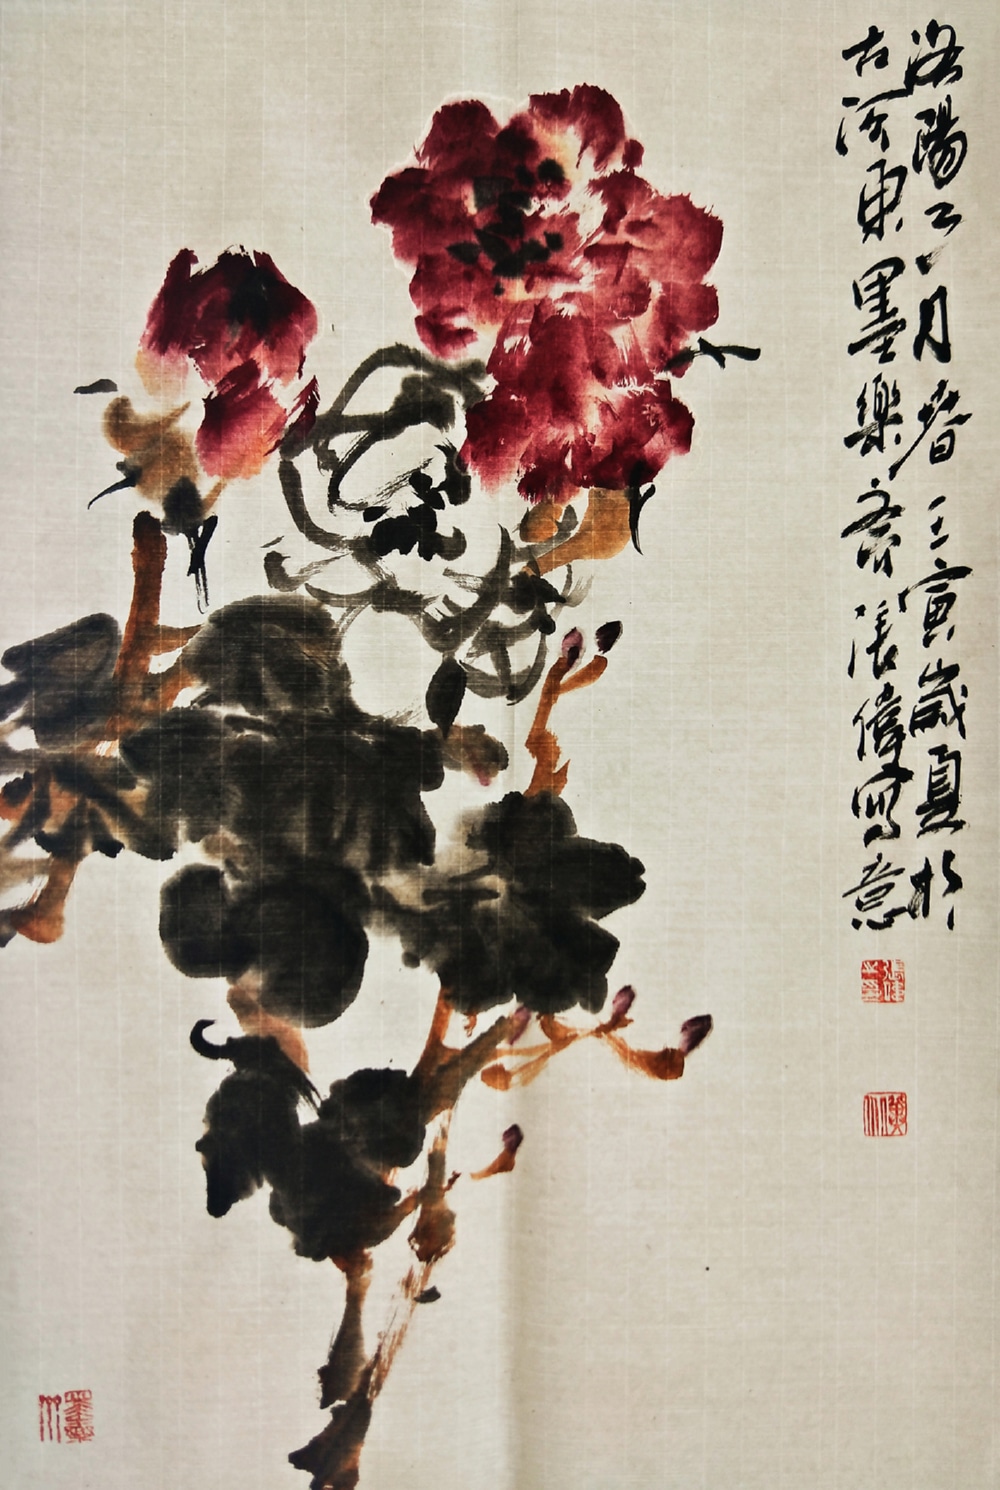 洛陽二月春壬寅歲夏於
古河東墨樂齋張偉寫意